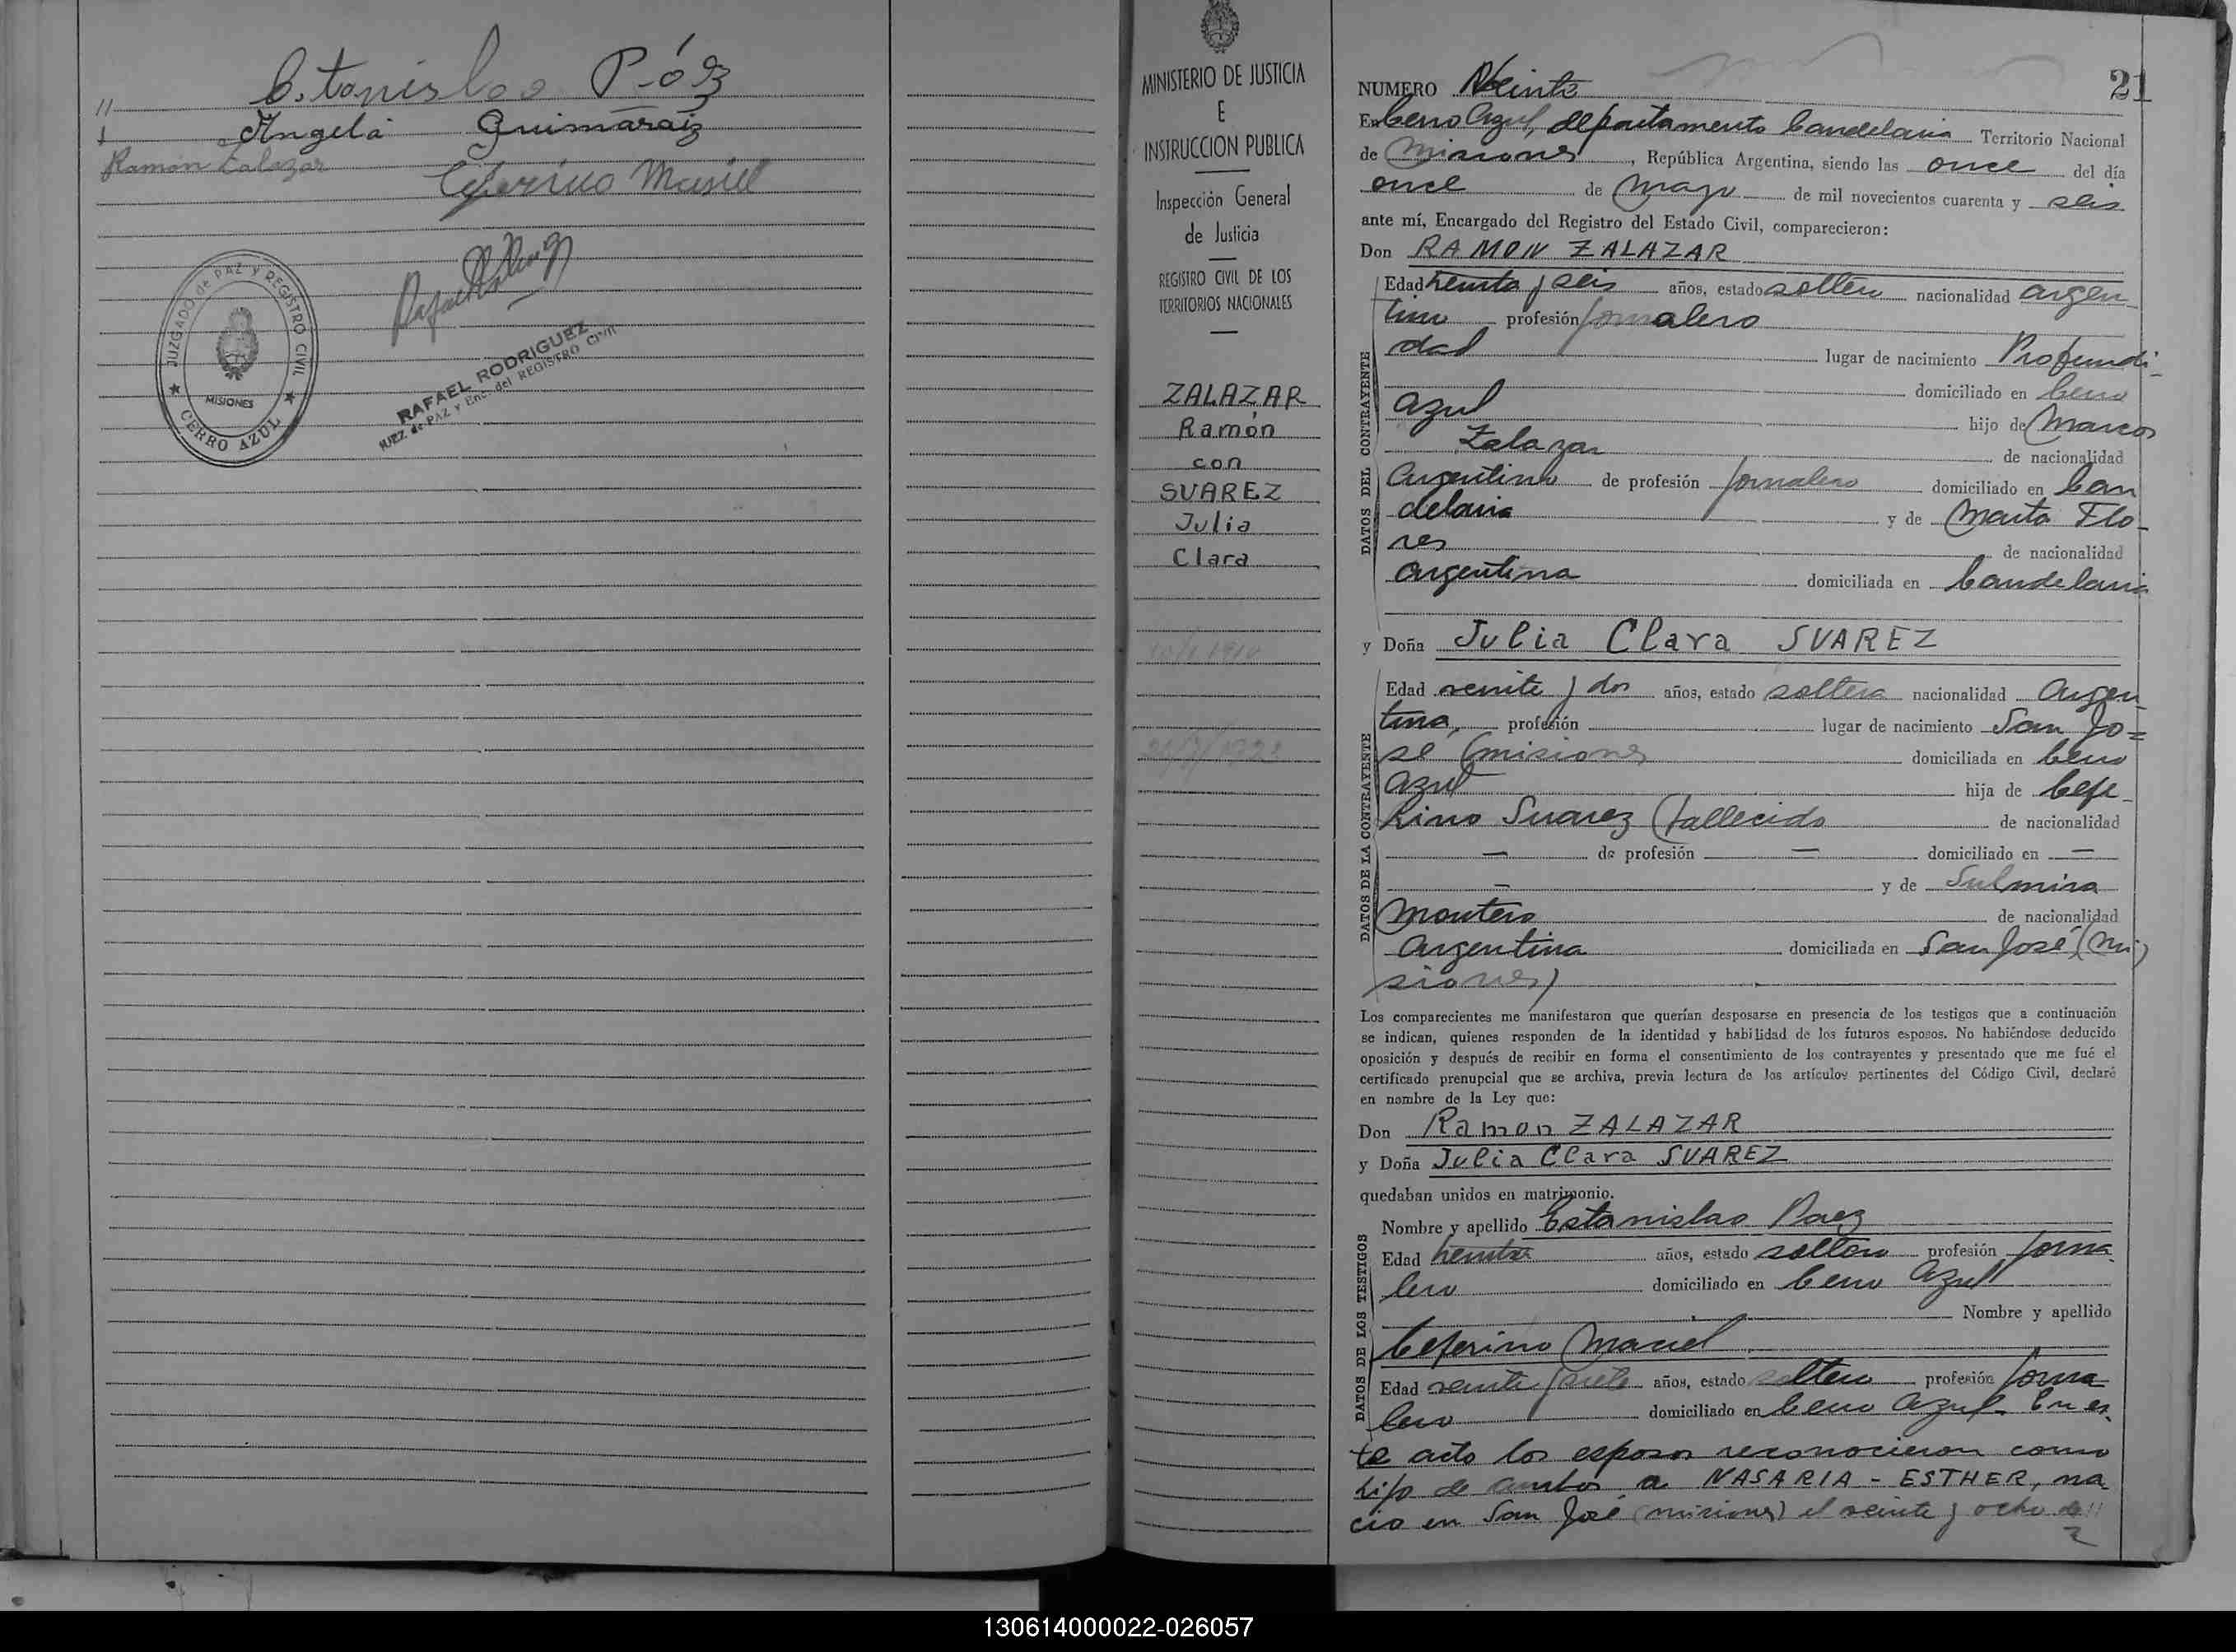 Estanislao Póez
11
Angela Guimaraiz
Ramón Zalazar
Ceferino Masiel
JUZGADO de PAZ Y REGISTRO CIVIL
MISIONES
CERRO AZUL
RAFAEL RODRIGUEZ
JUEZ de PAZ y Enc. del REGISTRO Civil
MINISTERIO DE JUSTICIA
E
INSTRUCCION PUBLICA
Inspección General
de Justicia
REGISTRO CIVIL DE LOS
TERRITORIOS NACIONALES
ZALAZAR
Ramón
con
SUAREZ
Julia
Clara
21
NUMERO Veinte
En Cerro Azul, departamento Candelaria Territorio Nacional
de Misiones, República Argentina, siendo las once del día
once de Mayo de mil novecientos cuarenta y seis
ante mí, Encargado del Registro del Estado Civil, comparecieron:
Don RAMON ZALAZAR
DATOS DEL CONTRAYENTE
Edad treinta y seis años, estado soltero nacionalidad argen-
tino profesión jornalero
lugar de nacimiento Profundi-
dad
domiciliado en Cerro
azul
hijo de Marcos
Zalazar
de nacionalidad
Argentino de profesión jornalero domiciliado en Can
delaria y de Marta Flo-
res
de nacionalidad
argentina domiciliada en Candelaria
y Doña Julia Clara SUAREZ
DATOS DE LA CONTRAYENTE
Edad veinte y dos años, estado soltera nacionalidad Argen-
tina, profesión lugar de nacimiento San Jo=
sé (misiones domiciliada en Cerro
azul hija de Cefe-
rino Suarez (fallecido de nacionalidad
— de profesión — domiciliado en —
— y de Sulmira
Montero de nacionalidad
argentina domiciliada en San José (Mi-
siones)
Los comparecientes me manifestaron que querían desposarse en presencia de los testigos que a continuación
se indican, quienes responden de la identidad y habilidad de los futuros esposos. No habiéndose deducido
oposición y después de recibir en forma el consentimiento de los contrayentes y presentado que me fué el
certificado prenupcial que se archiva, previa lectura de los artículos pertinentes del Código Civil, declaré
en nombre de la Ley que:
Don Ramon ZALAZAR
y Doña Julia Clara SUAREZ
quedaban unidos en matrimonio.
DATOS DE LOS TESTIGOS
Nombre y apellido Estanislao Paez
Edad treinta años, estado soltero profesión jorna
lero domiciliado en Cerro Azul
Nombre y apellido
Ceferino Maciel
Edad veinte y siete años, estado soltero profesión jorna
lero domiciliado en Cerro Azul. En es-
te acto los esposos reconocieron como
hijo de ambos a NASARIA - ESTHER, na
cio en San José (misiones) el veinte y ocho de //
130614000022-026057